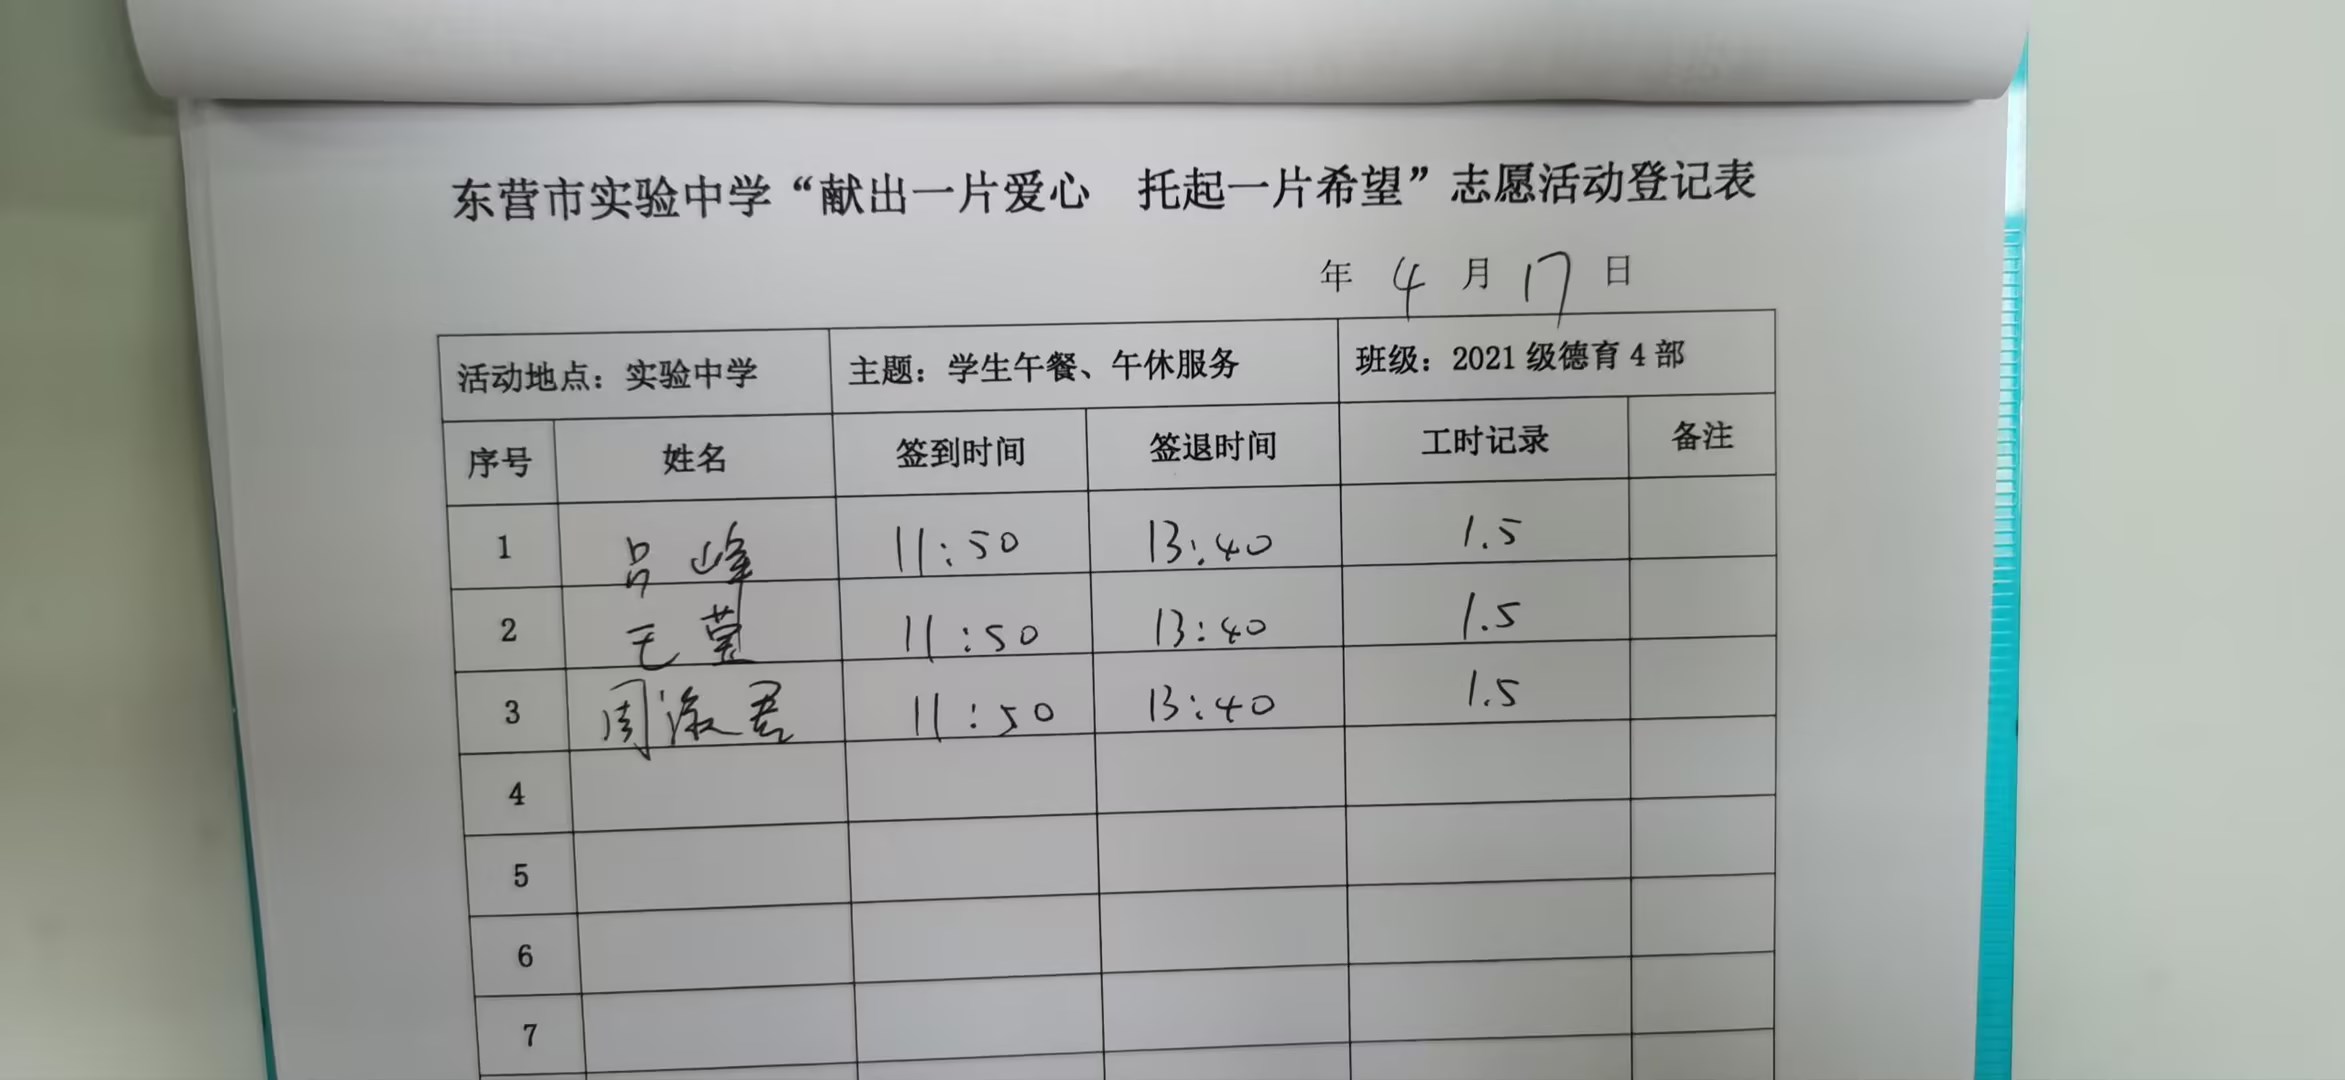 东营市实验中学“献出一片爱心 托起一片希望”志愿活动登记表
年 4 月 17 日
活动地点：实验中学 主题：学生午餐、午休服务 班级：2021 级德育 4 部
序号 姓名 签到时间 签退时间 工时记录 备注
1 吕峰 11:50 13:40 1.5
2 王莹 11:50 13:40 1.5
3 周淑君 11:50 13:40 1.5
4
5
6
7